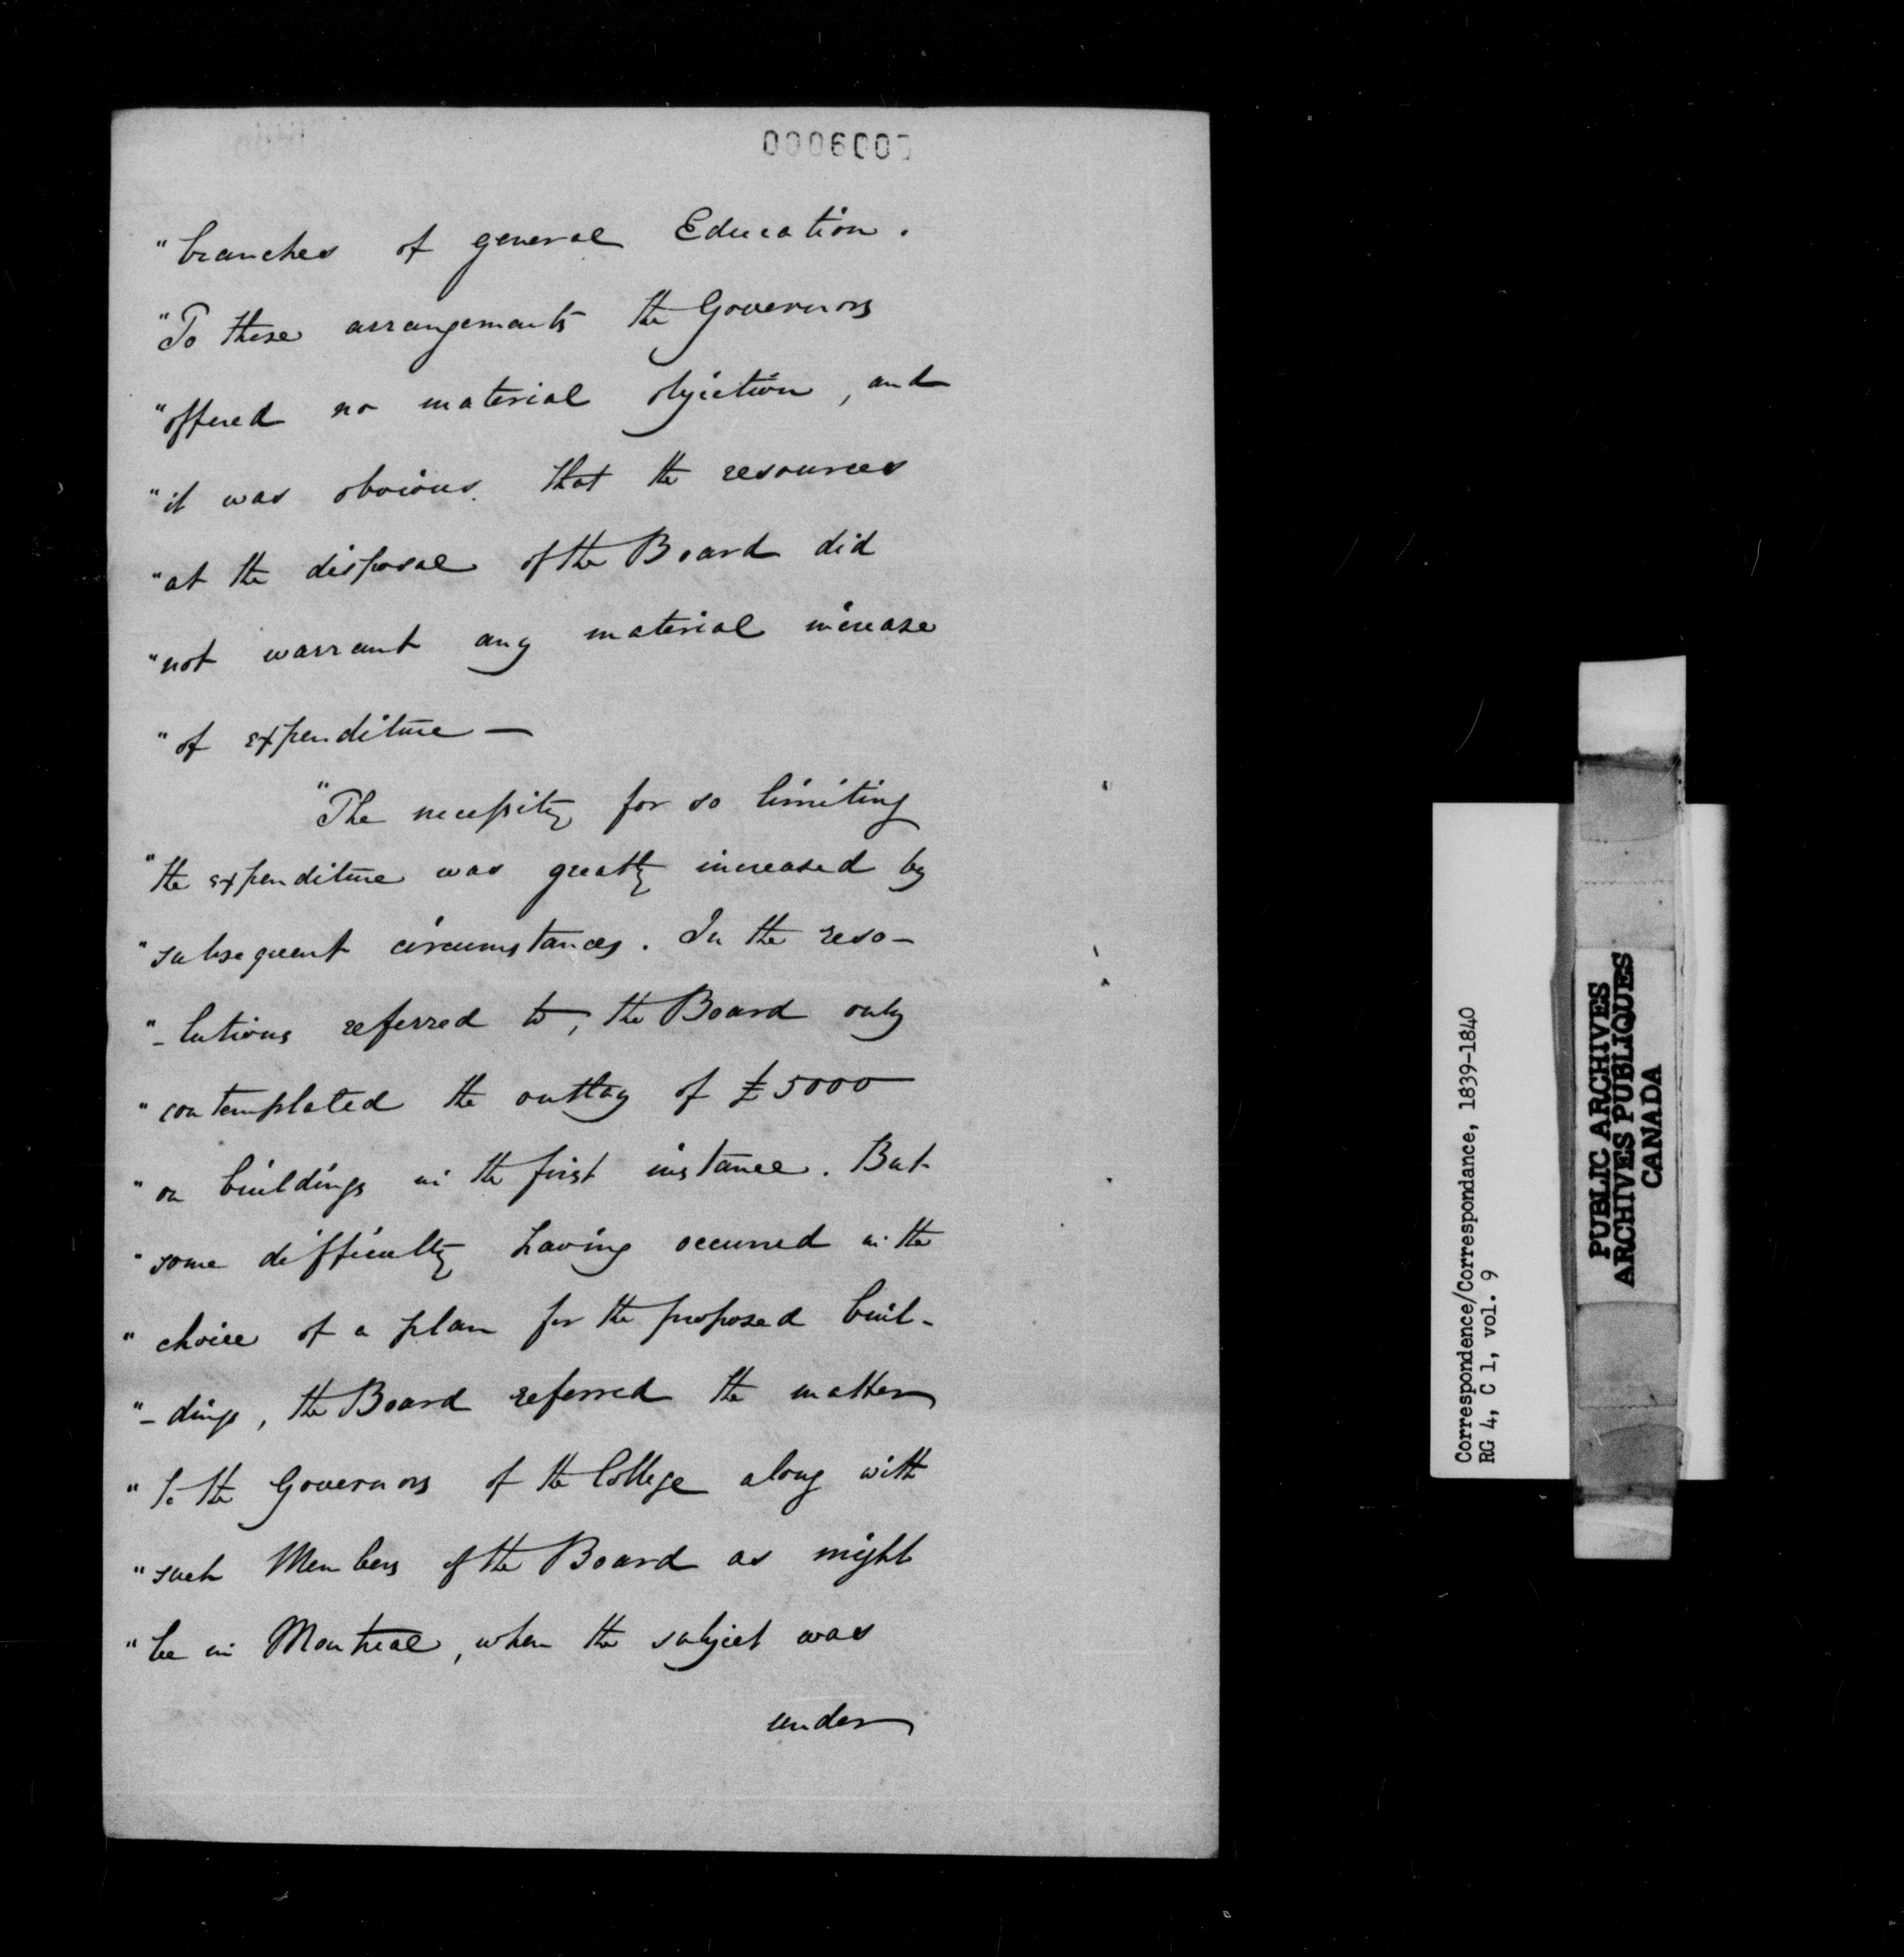 "branches of general Education.
"To these arrangements the Governors
"offered no material objection, and
"it was obvious that the resources
"at the disposal of the Board did
"not warrant any material increase
"of expenditure —
"The necessity for so limiting
"the expenditure was greatly increased by
"subsequent circumstances. In the reso-
"-lutions referred to, the Board only
"contemplated the outlay of £5000
"on buildings in the first instance. But
"some difficulty having occurred in the
"choice of a plan for the proposed buil-
"-dings, the Board referred the matter
"to the Governors of the College along with
"such Members of the Board as might
"be in Montreal, when the subject was
under
Correspondence/Correspondance, 1839-1840
RG 4, C 1, vol. 9
PUBLIC ARCHIVES
ARCHIVES PUBLIQUES
CANADA